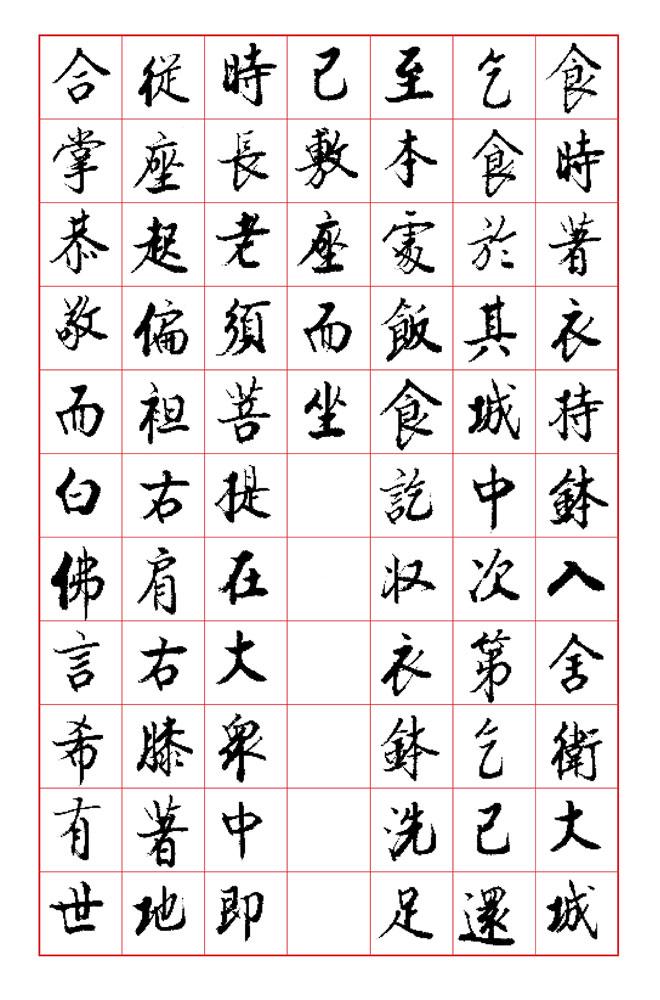 食時著衣持鉢入舍衛大城
乞食於其城中次第乞已還
至本處飯食訖収衣鉢洗足
已敷座而坐
時長老須菩提在大衆中即
從座起偏袒右肩右膝著地
合掌恭敬而白佛言希有世